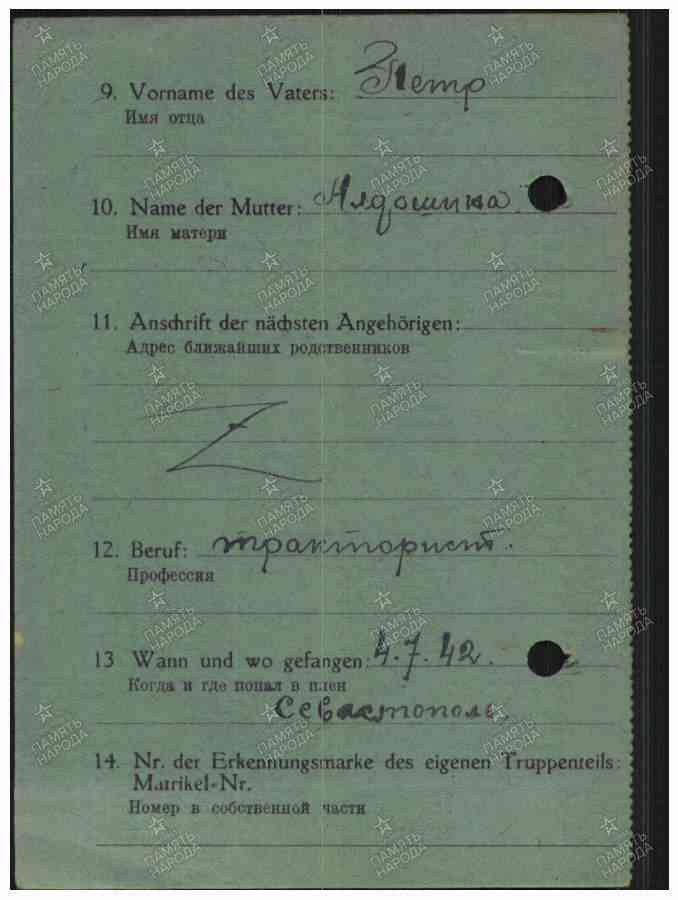 9. Vorname des Vaters: Петр
Имя отца
10. Name der Mutter: Лядошина
Имя матери
11. Anschrift der nächsten Angehörigen:
Адрес ближайших родственников
Z
12. Beruf: тракторист.
Профессия
13 Wann und wo gefangen: 4.7.42.
Когда и где попал в плен
Севастополь.
14. Nr. der Erkennungsmarke des eigenen Truppenteils:
Matrikel-Nr.
Номер в собственной части
ПАМЯТЬ НАРОДА